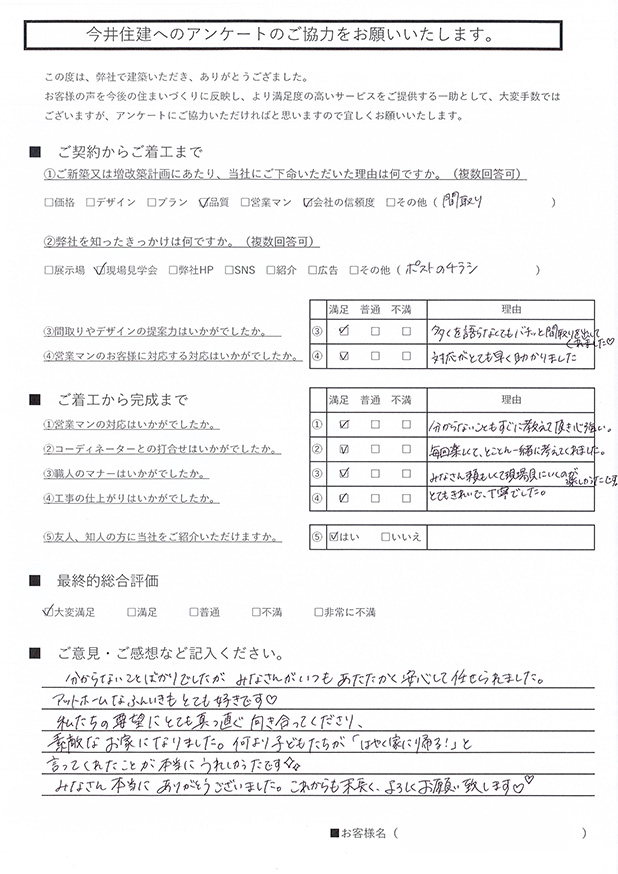 今井住建へのアンケートのご協力をお願いいたします。
この度は、弊社で建築いただき、ありがとうござました。
お客様の声を今後の住まいづくりに反映し、より満足度の高いサービスをご提供する一助として、大変手数では
ございますが、アンケートにご協力いただければと思いますので宜しくお願いいたします。
■ ご契約からご着工まで
①ご新築又は増改築計画にあたり、当社にご下命いただいた理由は何ですか。（複数回答可）
□価格 □デザイン □プラン ☑品質 □営業マン ☑会社の信頼度 □その他（ 間取り ）
②弊社を知ったきっかけは何ですか。（複数回答可）
□展示場 ☑現場見学会 □弊社HP □SNS □紹介 □広告 □その他（ ポストのチラシ ）
満足 普通 不満 理由
③間取りやデザインの提案力はいかがでしたか。 ③ ☑ □ □ 多くを語らなくてもバチッと間取りを出して
くれました♡
④営業マンのお客様に対応する対応はいかがでしたか。 ④ ☑ □ □ 対応がとても早く助かりました
■ ご着工から完成まで
満足 普通 不満 理由
①営業マンの対応はいかがでしたか。 ① ☑ □ □ 分からないこともすぐに教えて頂き心強い。
②コーディネーターとの打合せはいかがでしたか。 ② ☑ □ □ 毎回楽しくて、とことん一緒に考えてくれました。
③職人のマナーはいかがでしたか。 ③ ☑ □ □ みなさん頼もしくて現場見にいくのが
楽しかったです
④工事の仕上がりはいかがでしたか。 ④ ☑ □ □ とてもきれいで、丁寧でした。
⑤友人、知人の方に当社をご紹介いただけますか。 ⑤ ☑はい □いいえ
■ 最終的総合評価
☑大変満足 □満足 □普通 □不満 □非常に不満
■ ご意見・ご感想など記入ください。
分からないことばかりでしたが みなさんがいつも あたたかく 安心して 任せられました。
アットホームなふんいきも とても 好きです♡
私たちの 要望に とても 真っ直ぐ 向き合ってくださり、
素敵な お家に なりました。何より 子どもたちが「はやく家に帰る！」と
言ってくれたことが 本当に うれしかったです✧
みなさん 本当に ありがとうございました。これからも 末長く、よろしくお願い致します♡♡
■お客様名（ ）